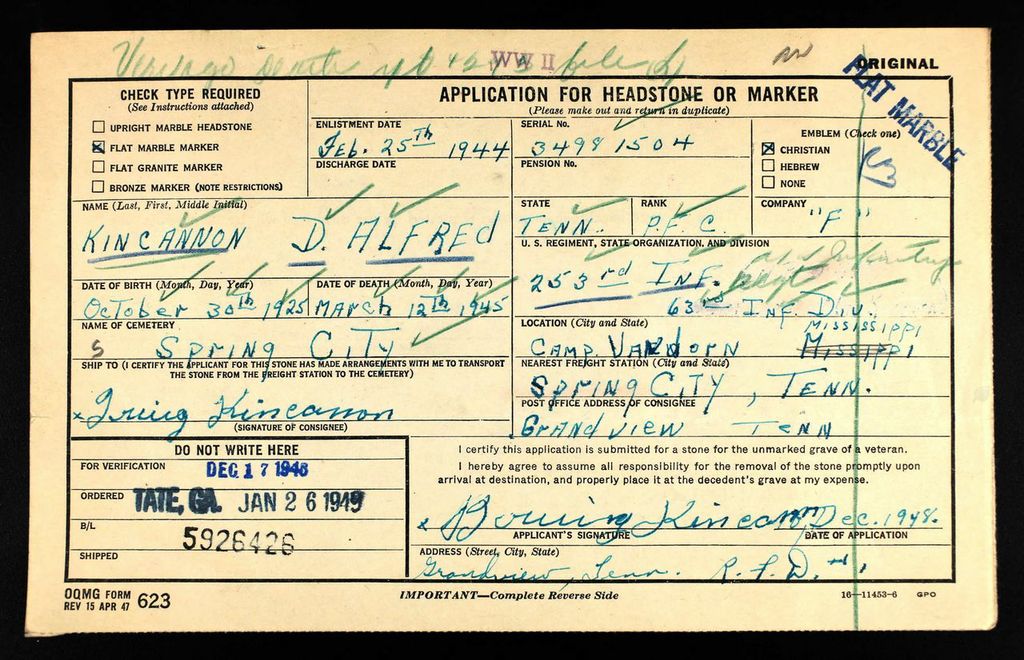 WW II
ORIGINAL
FLAT MARBLE
CHECK TYPE REQUIRED
(See Instructions attached)
UPRIGHT MARBLE HEADSTONE
FLAT MARBLE MARKER
FLAT GRANITE MARKER
BRONZE MARKER (NOTE RESTRICTIONS)
APPLICATION FOR HEADSTONE OR MARKER
(Please make out and return in duplicate)
ENLISTMENT DATE
Feb. 25th 1944
DISCHARGE DATE
SERIAL No.
34981504
PENSION No.
EMBLEM (Check one)
CHRISTIAN
HEBREW
NONE
NAME (Last, First, Middle Initial)
KINCANNON D. ALFREd
STATE
TENN.
RANK
P.F.C.
COMPANY
"F"
U. S. REGIMENT, STATE ORGANIZATION, AND DIVISION
253rd INF.
63rd INF DIV.
DATE OF BIRTH (Month, Day, Year)
October 30th 1925
DATE OF DEATH (Month, Day, Year)
MARCH 12th 1945
NAME OF CEMETERY
S SPRING CITY
LOCATION (City and State)
CAMP. VANDORN MISSISSIPPI
MISSIPPI
SHIP TO (I CERTIFY THE APPLICANT FOR THIS STONE HAS MADE ARRANGEMENTS WITH ME TO TRANSPORT
THE STONE FROM THE FREIGHT STATION TO THE CEMETERY)
NEAREST FREIGHT STATION (City and State)
SPRING CITY, TENN.
x Irvig Kincannon
(SIGNATURE OF CONSIGNEE)
POST OFFICE ADDRESS OF CONSIGNEE
GRANDVIEW TENN
DO NOT WRITE HERE
FOR VERIFICATION
DEC 17 1948
ORDERED
TATE, GA. JAN 26 1949
B/L
5926426
SHIPPED
I certify this application is submitted for a stone for the unmarked grave of a veteran.
I hereby agree to assume all responsibility for the removal of the stone promptly upon
arrival at destination, and properly place it at the decedent's grave at my expense.
x Kincannon Dec. 1948.
APPLICANT'S SIGNATURE
DATE OF APPLICATION
ADDRESS (Street, City, State)
Grandview, Tenn. R. F. D. #1
OQMG FORM
REV 15 APR 47 623
IMPORTANT—Complete Reverse Side
16—11453-6 GPO